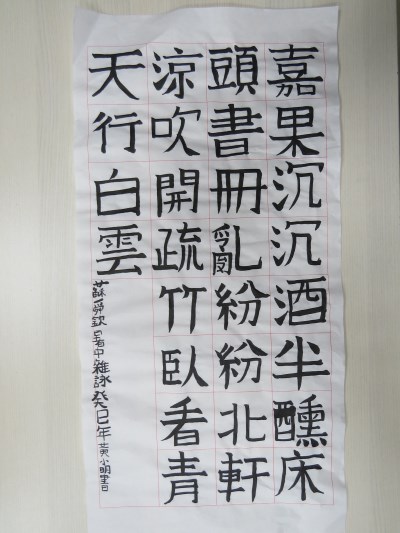 嘉果沉沉酒半醺床
頭書冊亂紛紛北軒
涼吹開疏竹臥看青
天行白雲
蘇舜欽暑中雜詠癸巳年黃小明書